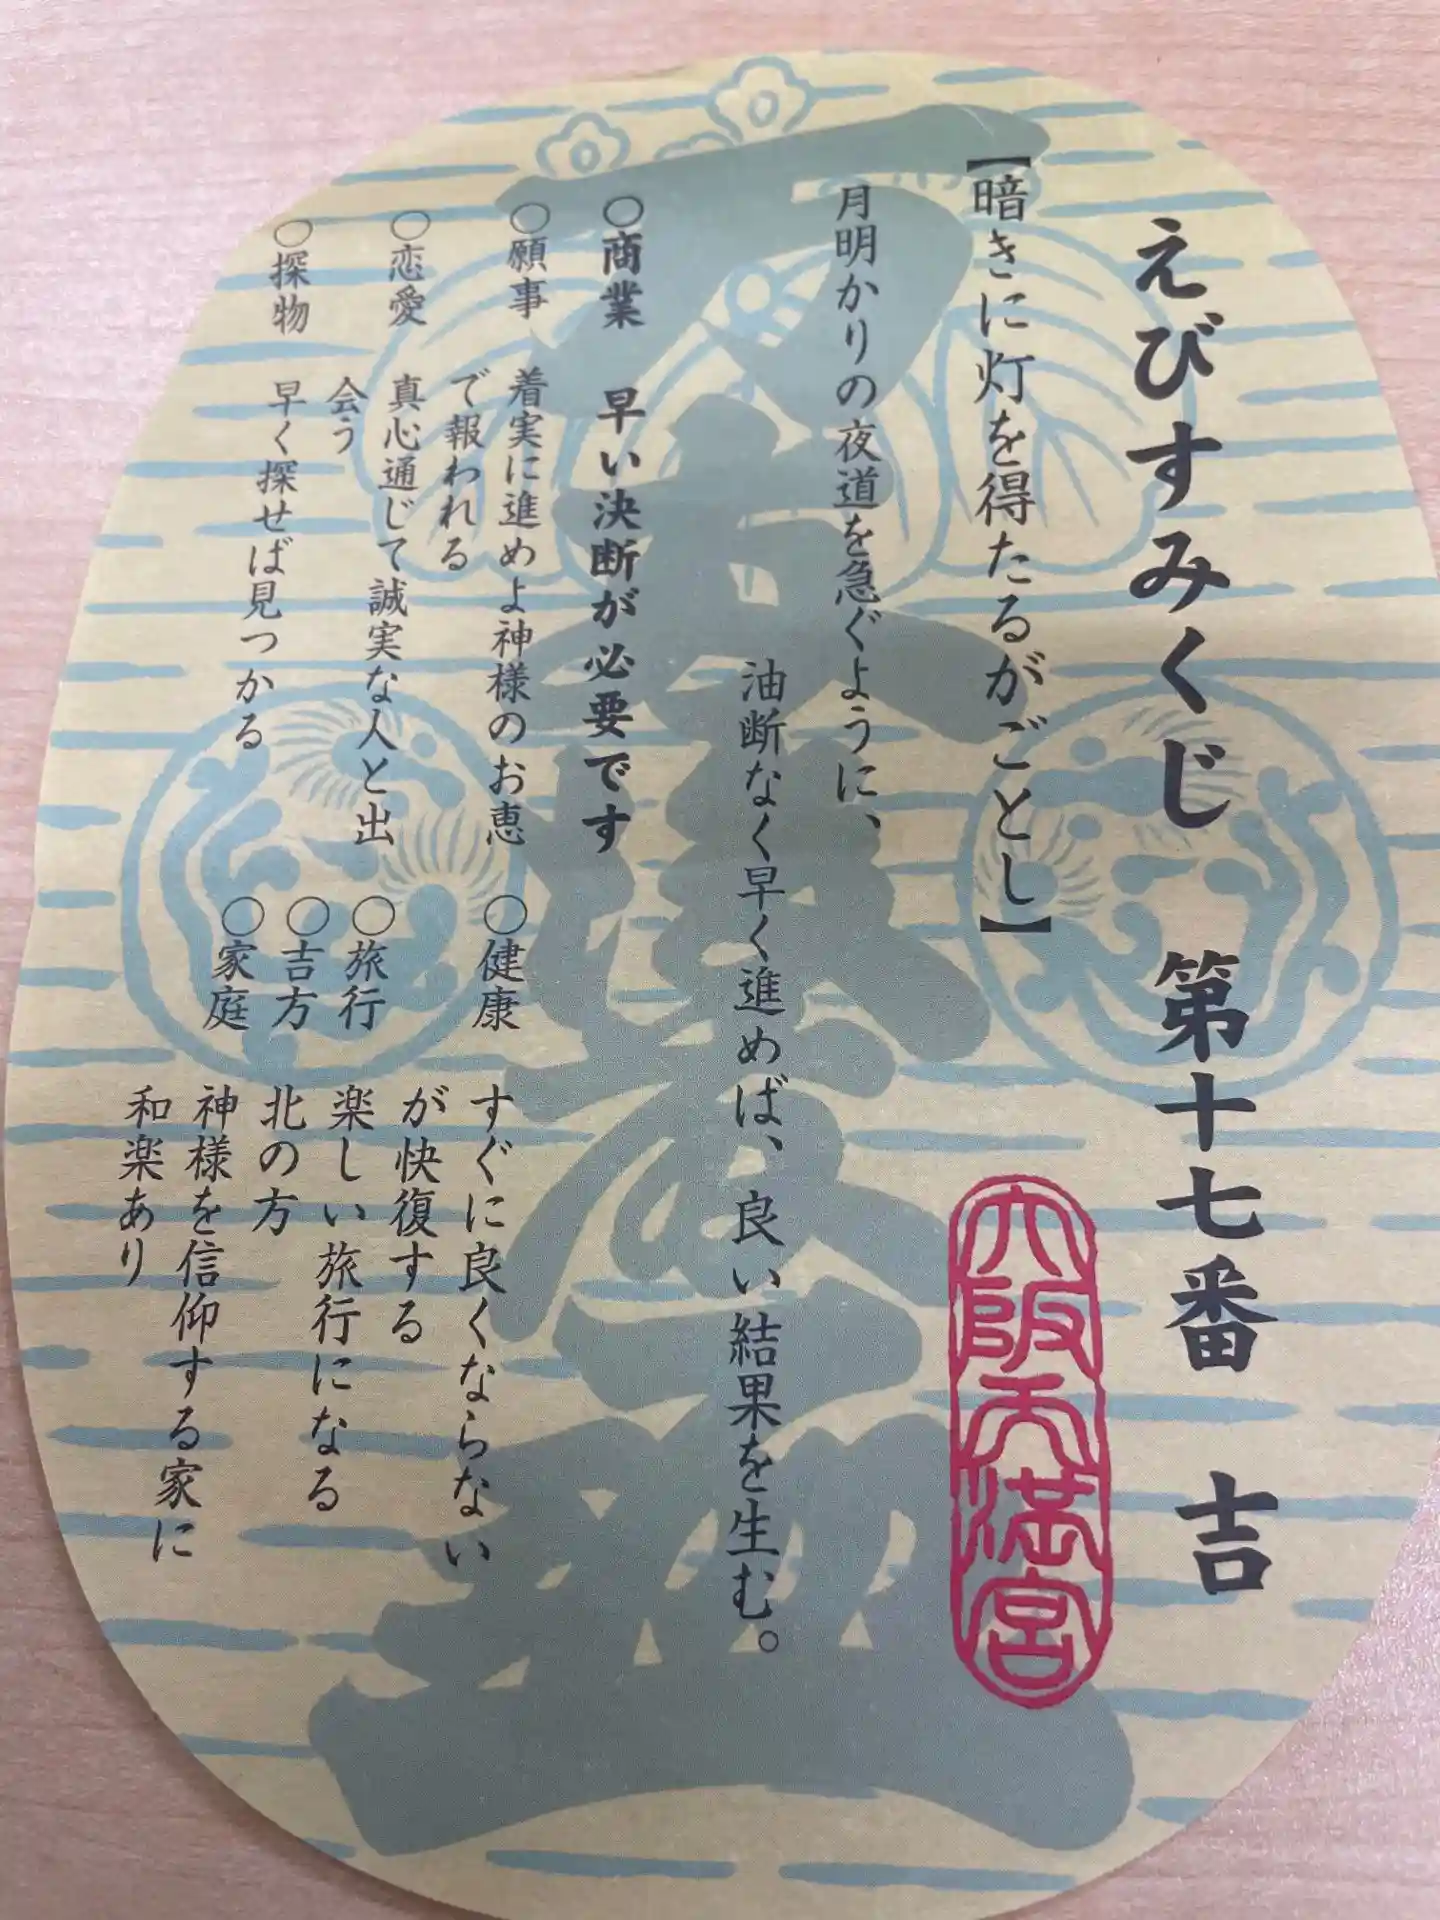 えびすみくじ 第十七番 吉
大阪天満宮
【暗きに灯を得たるがごとし】
月明かりの夜道を急ぐように、
油断なく早く進めば、良い結果を生む。
○商業 早い決断が必要です
○願事 着実に進めよ神様のお恵
で報われる
○恋愛 真心通じて誠実な人と出
会う
○探物 早く探せば見つかる
○健康 すぐに良くならない
が快復する
○旅行 楽しい旅行になる
○吉方 北の方
○家庭 神様を信仰する家に
和楽あり